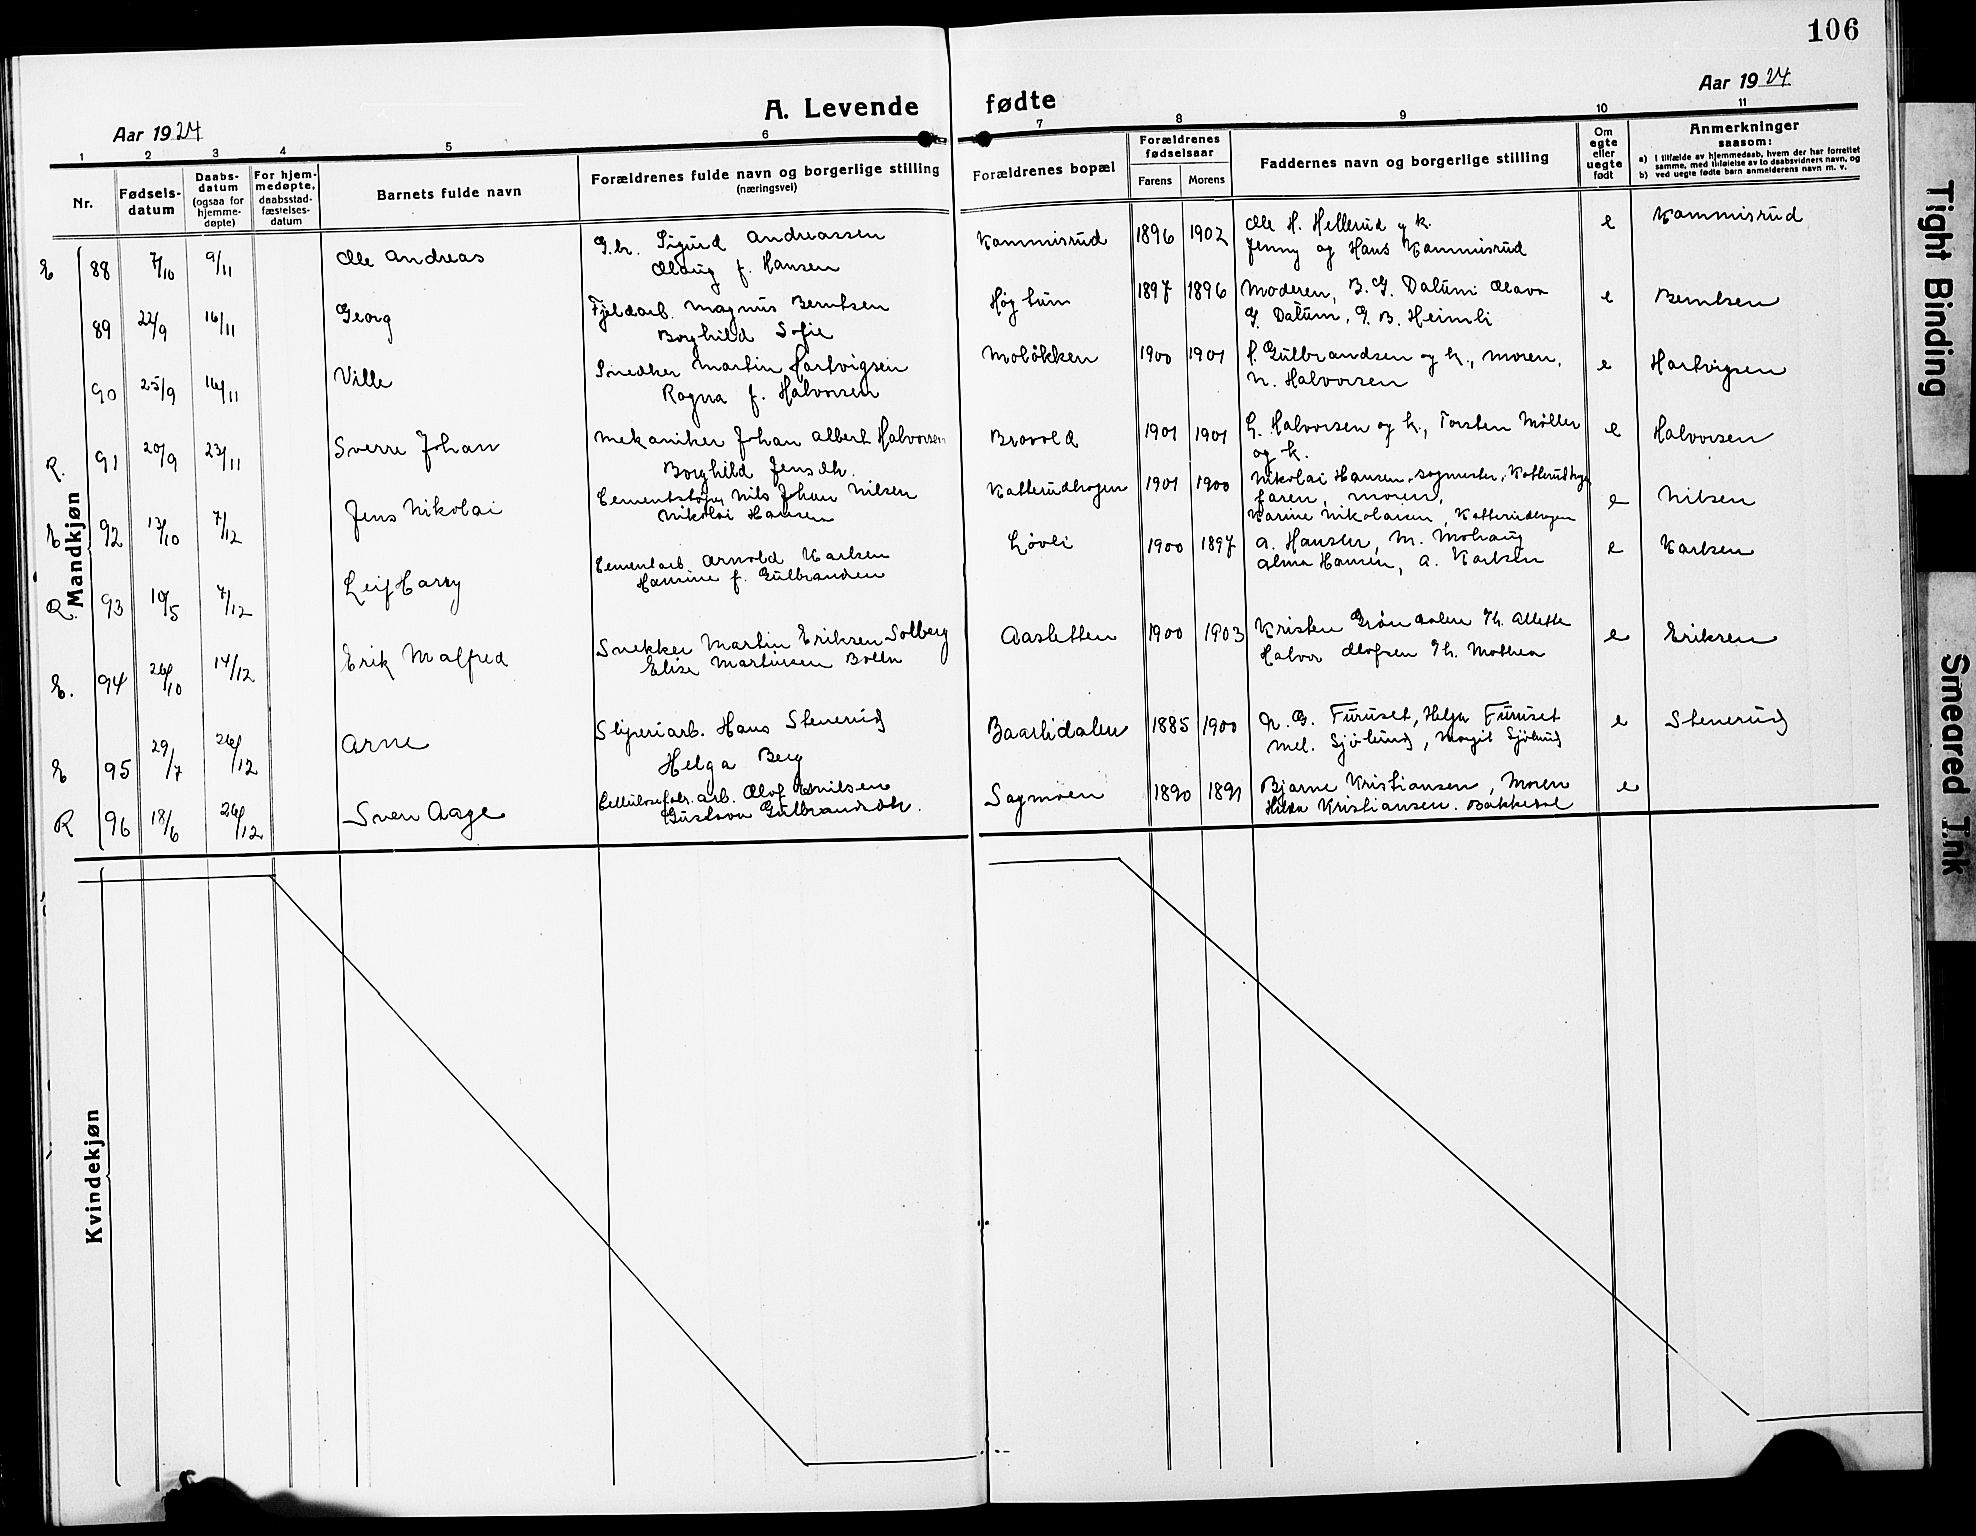 106
Aar 1924
A. Levende fødte
Aar 1924
1 2 3 4 5 6 7 8 9 10 11
Nr.
Fødsels-
datum
Daabs-
datum
(ogsaa for
hjemme-
døpte)
For hjem-
medøpte,
daabsstad-
fæstelses-
datum
Barnets fulde navn
Forældrenes fulde navn og borgerlige stilling
(næringsvei)
Forældrenes bopæl
Forældrenes
fødselsaar
Farens Morens
Faddernes navn og borgerlige stilling
Om
egte
eller
uegte
født
Anmerkninger
saasom:
a) I tilfælde av hjemmedaab, hvem der har forrettet
samme, med tilføielse av to daabsvidners navn, og
b) ved uegte fødte barn anmelderens navn m. v.
Mandkjøn
E 88 7/10 9/11 Ole Andreas G.br. Sigurd Andreassen Kammisrud 1896 1902 Ole H. Hellerud og k. e Kammisrud
Olaug f. Hansen Jenny og Hans Kammisrud
89 22/9 16/11 Georg Fjeldarb. Magnus Berntsen Høgtun 1897 1896 Moderen, B. G. Dalum Olava e Berntsen
Borghild Sofie G. Dalum, G. B. Heimli
90 25/9 16/11 Ville Snedker Martin Hartvigsen Moløkken 1900 1901 Gulbrandsen og k., moren, e Hartvigsen
Ragna f. Halvorsen N. Halvorsen
R. 91 20/9 23/11 Sverre Johan Mekaniker Johan Albert Halvorsen Bravold 1901 1901 L. Halvorsen og k., Torsten Møller e Halvorsen
Borghild Jensdtr. og k.
E 92 13/10 7/12 Jens Nikolai Nils Johan Nilsen Katterudhagen 1901 1900 Nikolai Hansen, sagmester, e Nilsen
Nikolai Hansen faren, moren,
Karine Nikolaisen, Katterudhagen
R. 93 10/5 7/12 Leif Harry Cementarb. Arnold Karlsen Løvli 1900 1897 A. Hansen, M. Mohaug e Karlsen
Hansine f. Gulbrandsen Alma Hansen, A. Karlsen
E. 94 26/10 14/12 Erik Malfred Snekker Martin Eriksen Solberg Aasletten 1900 1903 Kristen Grøndalen Th. Alette e Eriksen
Elise Martinsen Halvor Olofsen Th. Mathea
E 95 29/7 26/12 Arne Sliperiarb. Hans Stenerud Baarlidalen 1885 1900 N. G. Furuset, Helga Furuset e Stenerud
Helga Berg Mel. Sjølund, Margit Sjølund
R 96 18/6 26/12 Sven Aage Cellulosefabr.arb. Olof Enilsen Sagmoen 1890 1891 Bjarne Kristiansen, Moren e
Gustava Gulbrandsdtr. Hilda Kristiansen.
Kvindekjøn
Tight Binding
Smeared Ink